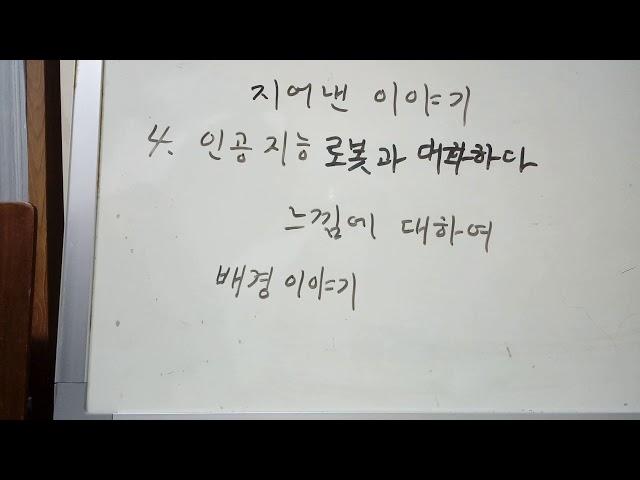 지어낸 이야기
4. 인공지능 로봇과 대화하다
느낌에 대하여
배경 이야기